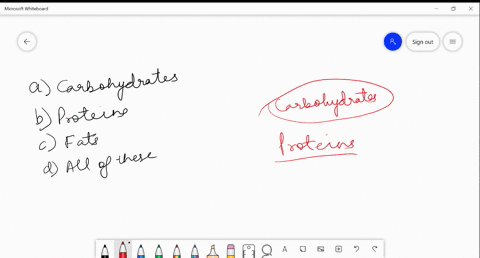 Microsoft Whiteboard
Sign out
a) Carbohydrates
b) Proteins
c) Fats
d) All of these
Carbohydrates
Proteins
A